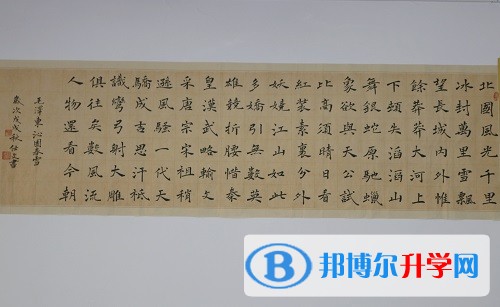 北國風光千里
冰封萬里雪飄
望長城內外惟
餘莽莽大河上
下頓失滔滔山
舞銀蛇原馳蠟
象欲與天公試
比高須晴日看
紅裝素裹分外
妖嬈江山如此
多嬌引無數英
雄競折腰惜秦
皇漢武略輸文
采唐宗宋祖稍
遜風騷一代天
驕成吉思汗祗
識彎弓射大雕
俱往矣數風流
人物還看今朝
毛澤東沁園春雪
歲次戊戌秋
邦博尔升学网